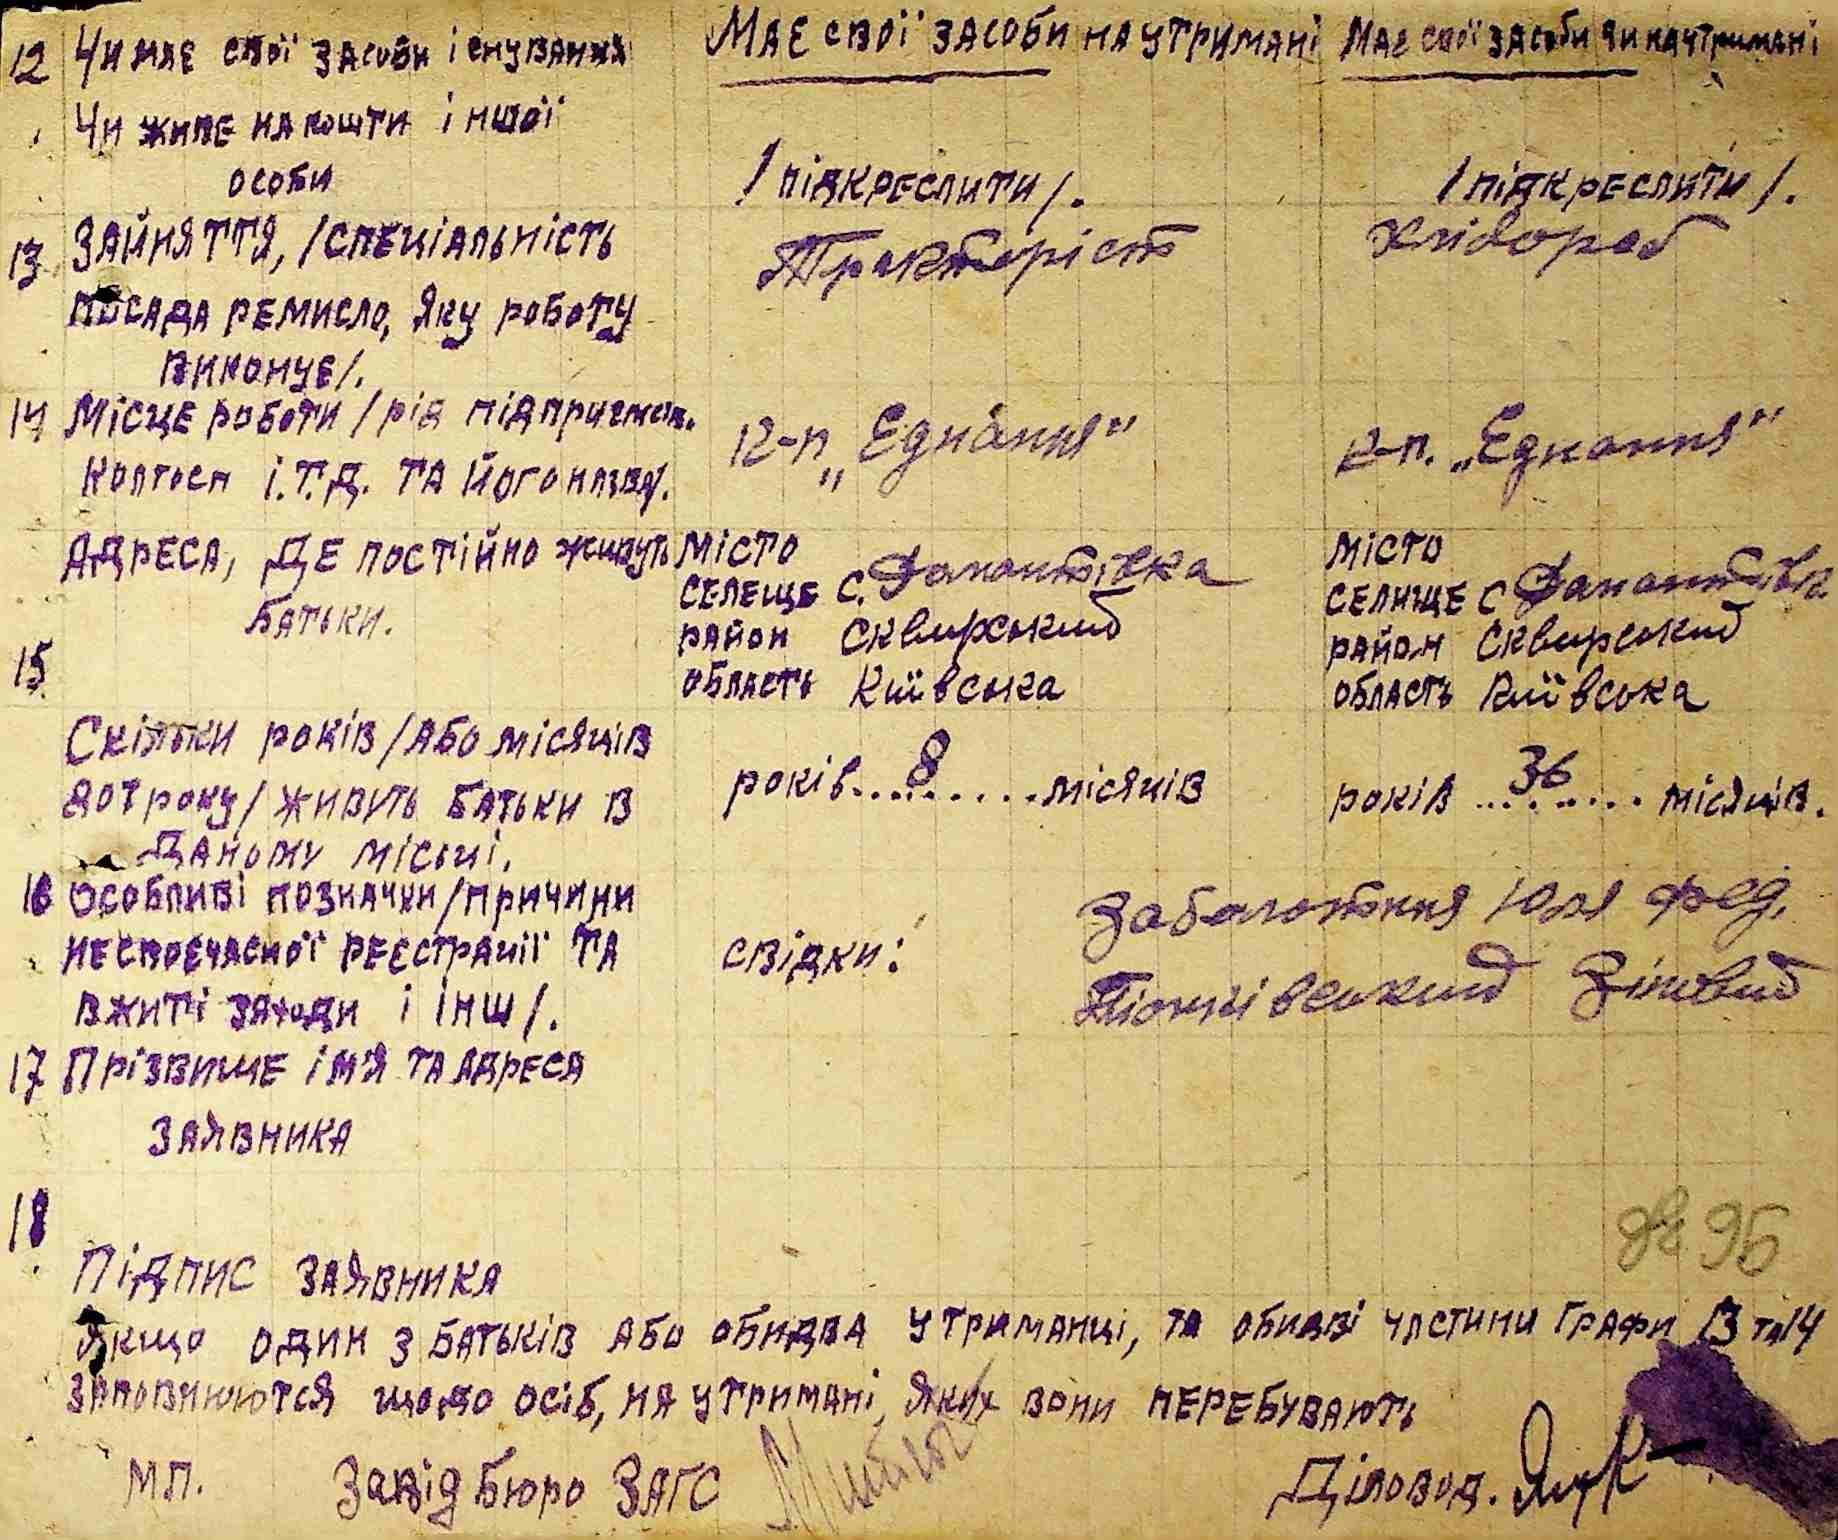 12 Чи має свої засоби існування Має свої засоби на утримані Має свої засоби чи на утримані
Чи живе на кошти іншої
особи /підкреслити/. /підкреслити/.
13 Зайняття, /спеціальність Тракторіст Хлібороб
посада ремисло, яку роботу
виконує/.
14 Місце роботи /рід підприємств.
колгосп і.т.д. та його назва/. к-п „Єднання" к-п. „Єднання"
Адреса, де постійно живуть місто місто
батьки. селеще с. селище с
район Сквирський район Сквирський
15 область Київська область Київська
Скільки років /або місяців
до 1 року/ живить батьки в років...8......місяців років ...36..... місяців.
даному місьці.
16 Особливі позначки /причини
несвоєчасної реєстрації та свідки: Заболотння Юля Фед.
вжиті заходи і інш/. Зіновий
17 Прізвише ім'я та адреса
заявника
18
Підпис заявника 96
Якщо один з батьків або обидва утриманці, та обидві частини графи 13 та 14
заповнюются щодо осіб, на утримані яких вони перебувають
МП. Завід бюро ЗАГС Діловод.